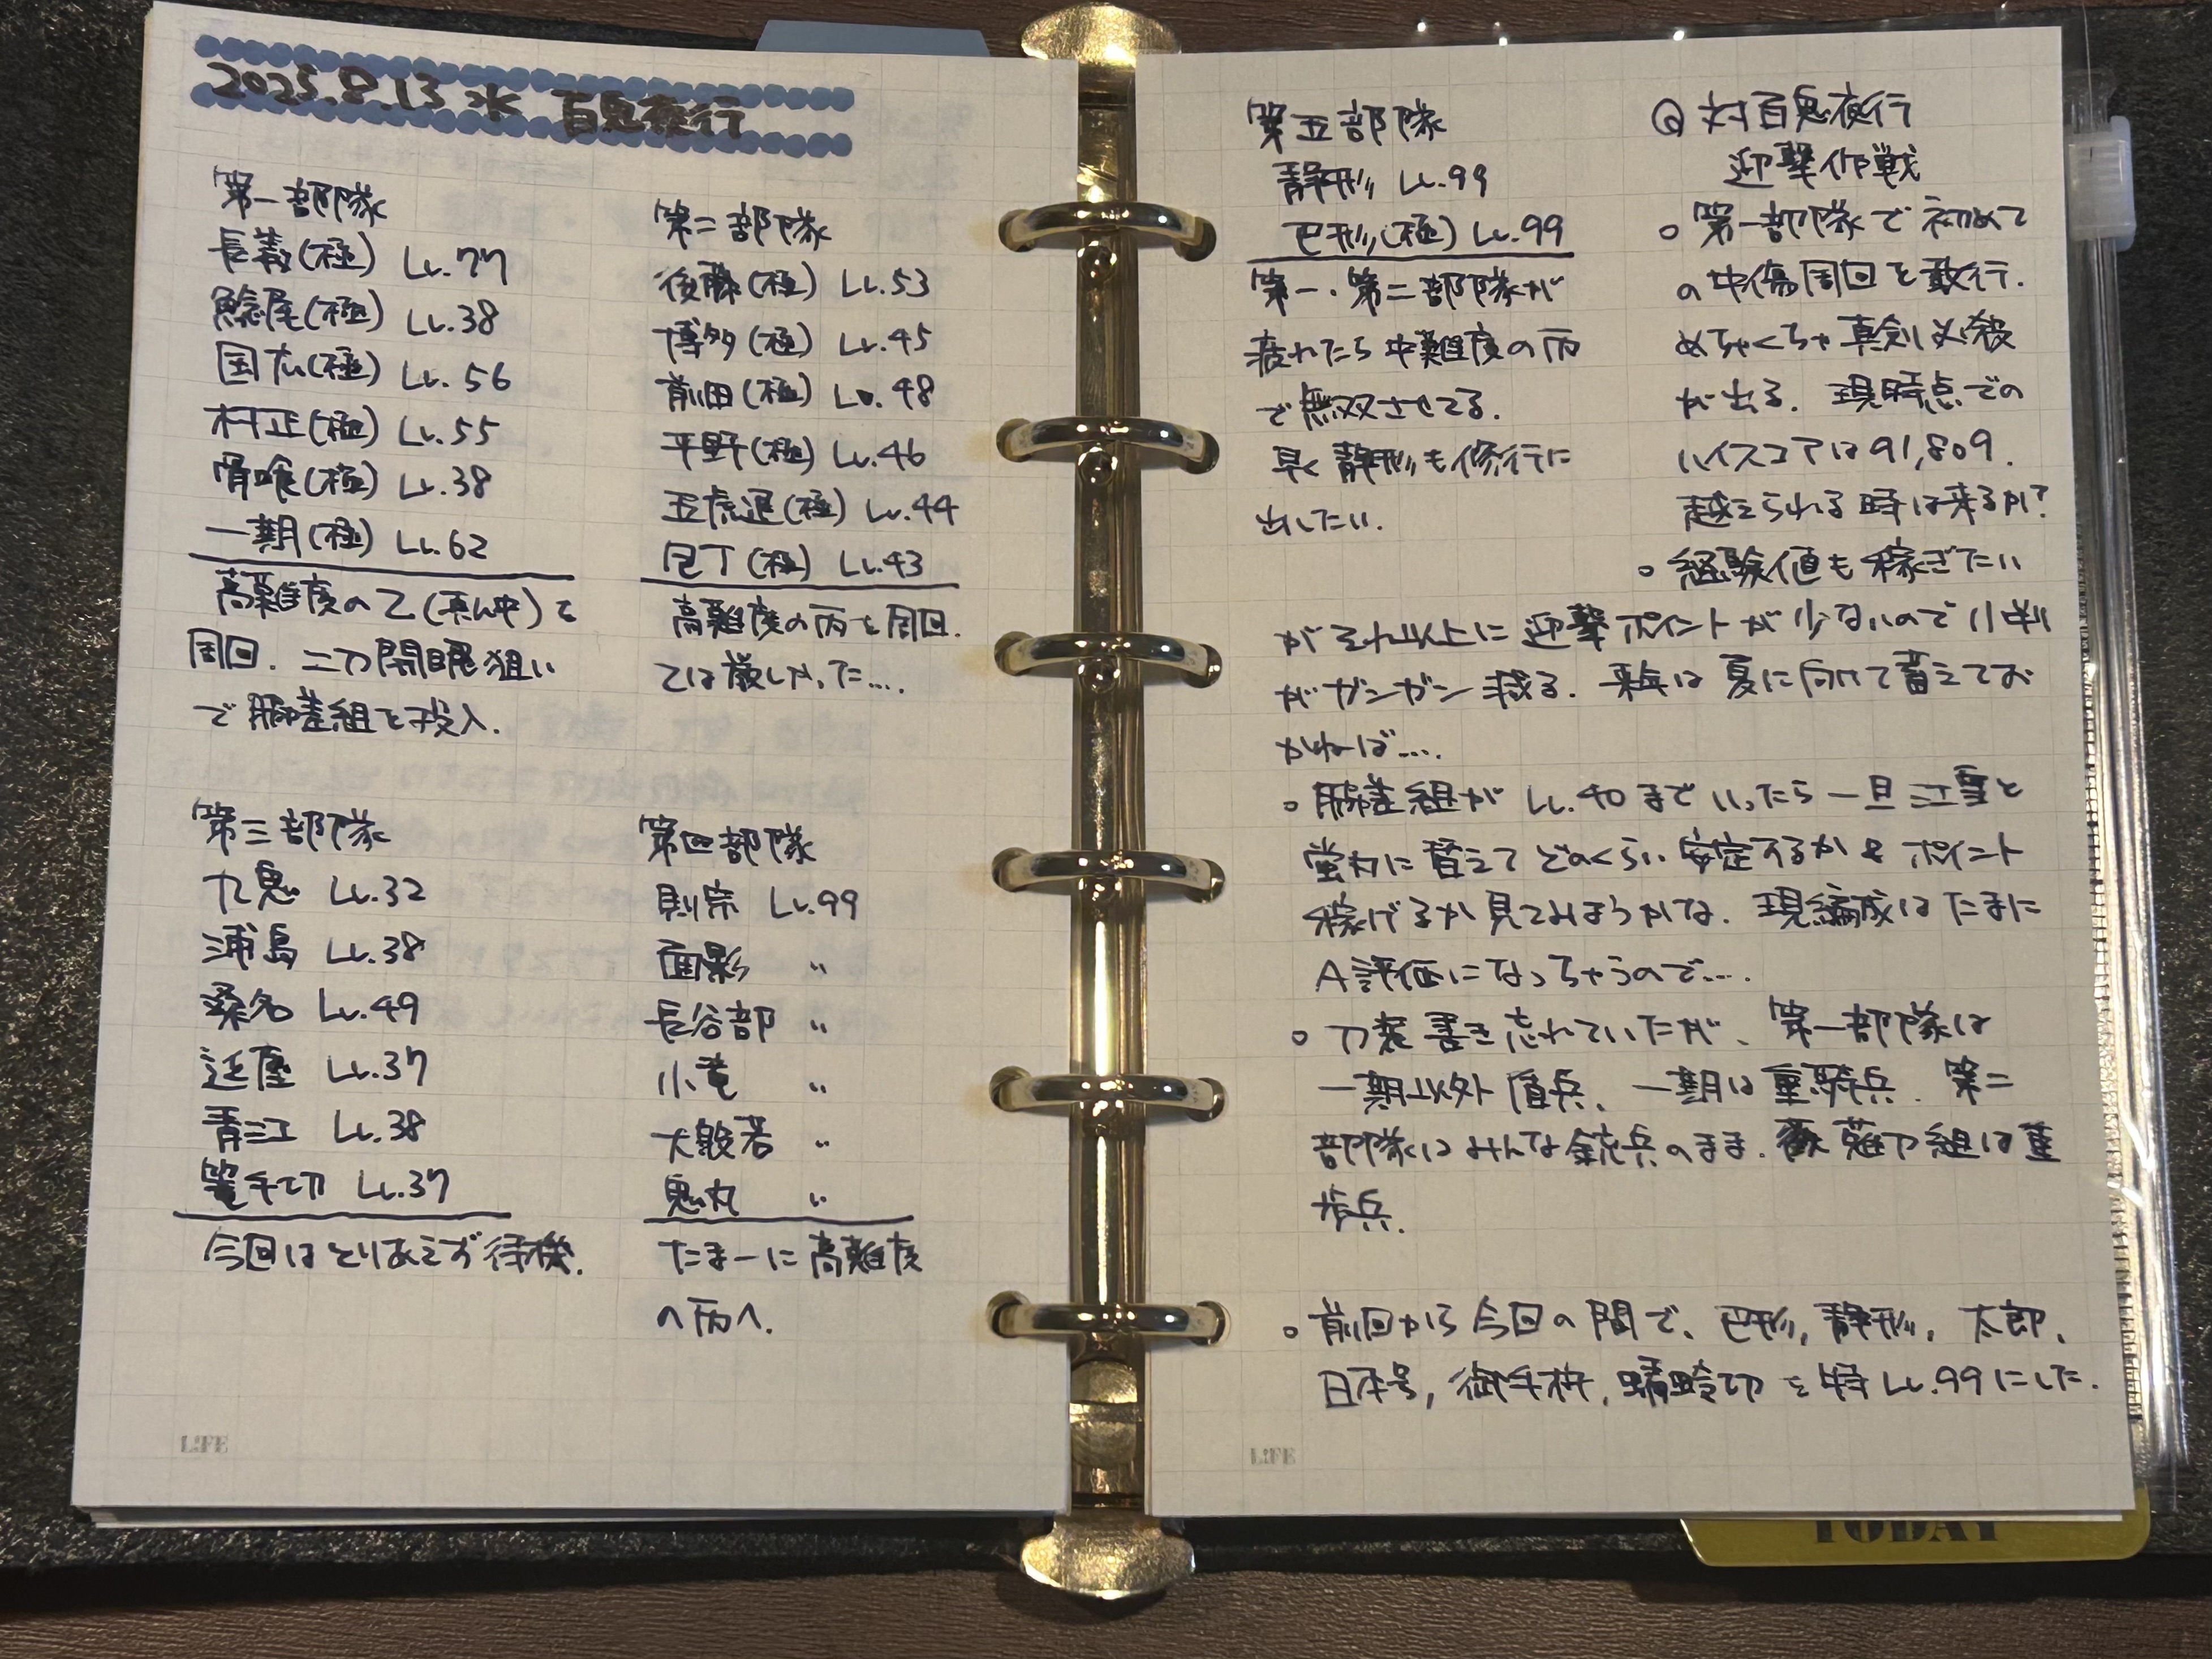 2025.8.13 水 百鬼夜行
第一部隊
長義(極) Lv.77
鯰尾(極) Lv.38
国広(極) Lv.56
村正(極) Lv.55
骨喰(極) Lv.38
一期(極) Lv.62
高難度の乙(真ん中)を
周回. 二刀開眼狙い
で脇差組を投入.
第二部隊
後藤(極) Lv.53
博多(極) Lv.45
前田(極) Lv.48
平野(極) Lv.46
五虎退(極) Lv.44
包丁(極) Lv.43
高難度の丙を周回.
乙は厳しかった….
第三部隊
九鬼 Lv.32
浦島 Lv.38
桑名 Lv.49
Lv.37
青江 Lv.38
篭手切 Lv.37
今回はとりあえず待機.
第四部隊
則宗 Lv.99
面影 〃
長谷部 〃
小竜 〃
大般若 〃
鬼丸 〃
たまーに高難度
の丙へ.
第五部隊
静形 Lv.99
巴形(極) Lv.99
第一・第二部隊が
疲れたら中難度の丙
で無双させてる.
早く静形も修行に
出したい.
◎ 対百鬼夜行
迎撃作戦
○ 第一部隊で初めて
の中傷周回を敢行.
めちゃくちゃ真剣必殺
が出る. 現時点での
ハイスコアは91,809.
越えられる時は来るか?
○ 経験値も稼ぎたい
がそれ以上に迎撃ポイントが少ないので小判
がガンガン減る. 来年は夏に向けて蓄えてお
かねば….
○ 脇差組がLv.40までいったら一旦江雪と
蛍丸に替えてどのくらい安定するか&ポイント
稼げるか見てみようかな. 現編成はたまに
A評価になっちゃうので….
○ 刀装書き忘れていたが、第一部隊は
一期以外盾兵、一期は重騎兵. 第二
部隊はみんな銃兵のまま. 薙刀組は重
歩兵.
○ 前回から今回の間で、巴形, 静形, 太郎,
日本号, 御手杵, 蜻蛉切を特Lv.99にした.
LIFE
LIFE
TODAY